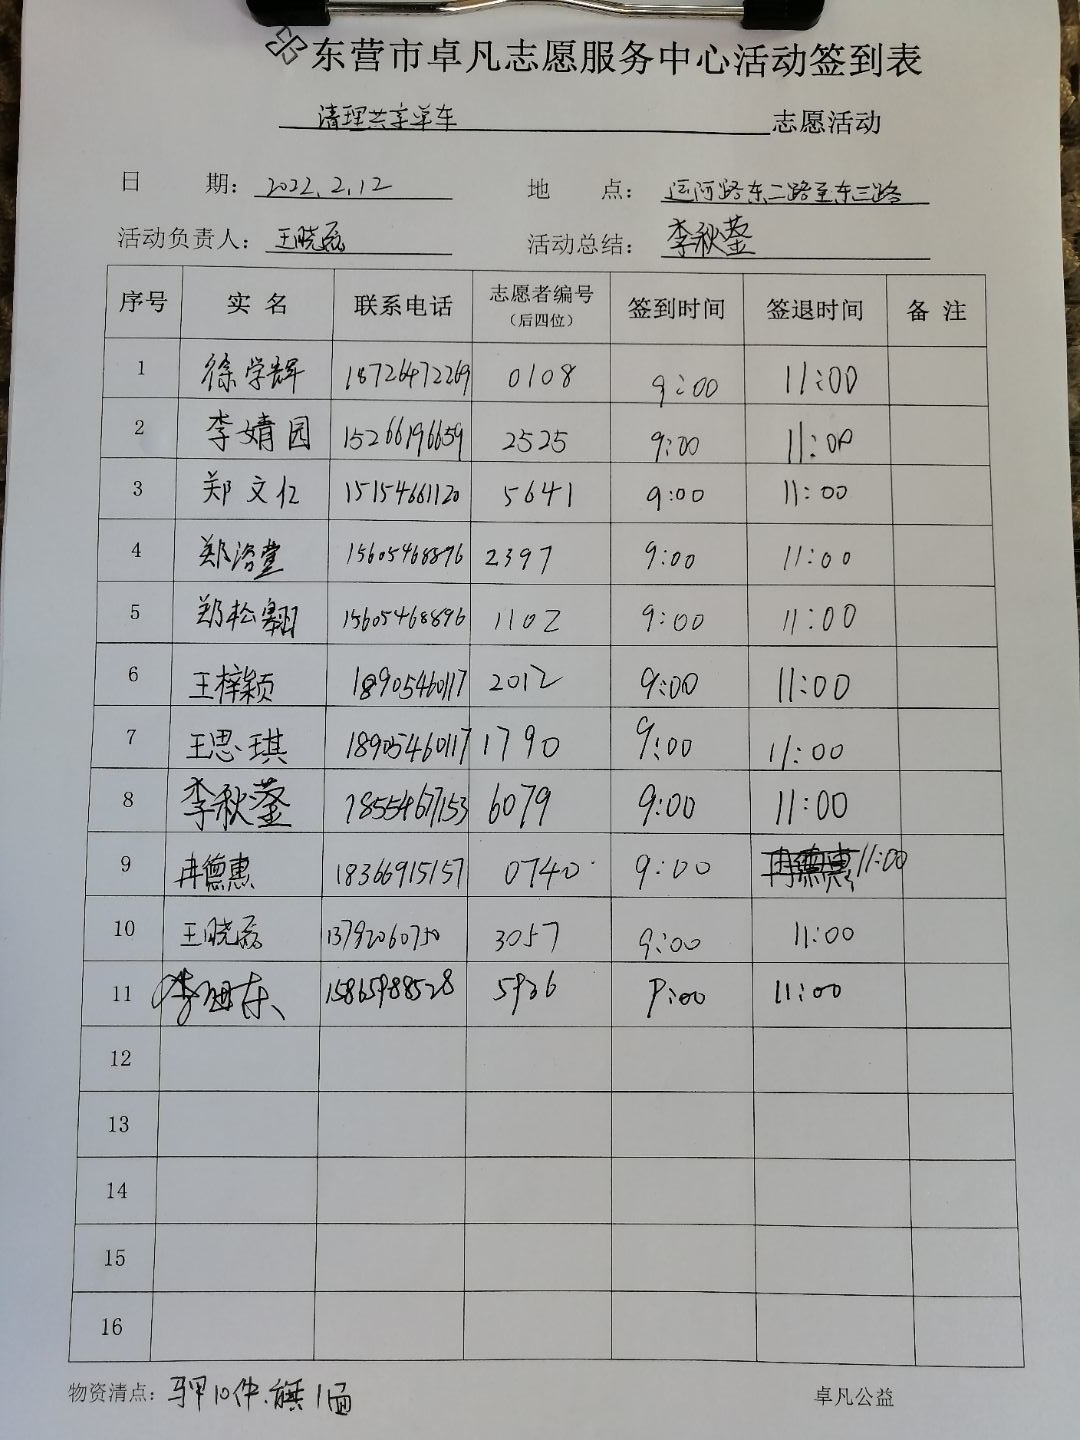 东营市卓凡志愿服务中心活动签到表
清理共享单车 志愿活动
日 期：2022.2.12 地 点：运河路东二路至东三路
活动负责人：王晓磊 活动总结：李秋蓥
序号 实 名 联系电话 志愿者编号（后四位） 签到时间 签退时间 备 注
1 徐学辉 18726472269 0108 9:00 11:00
2 李婧园 15266196659 2525 9:00 11:00
3 郑文仁 15154661120 5641 9:00 11:00
4 郑洺堂 15605468896 2397 9:00 11:00
5 郑松翱 15605468896 1102 9:00 11:00
6 王梓颖 18905460117 2012 9:00 11:00
7 王思琪 18905460117 1790 9:00 11:00
8 李秋蓥 18554671153 6079 9:00 11:00
9 冉德惠 18366915157 0740 9:00 11:00
10 王晓磊 13792060750 3057 9:00 11:00
11 李 东 15865988528 5926 9:00 11:00
12
13
14
15
16
物资清点：马甲10件、旗1面 卓凡公益